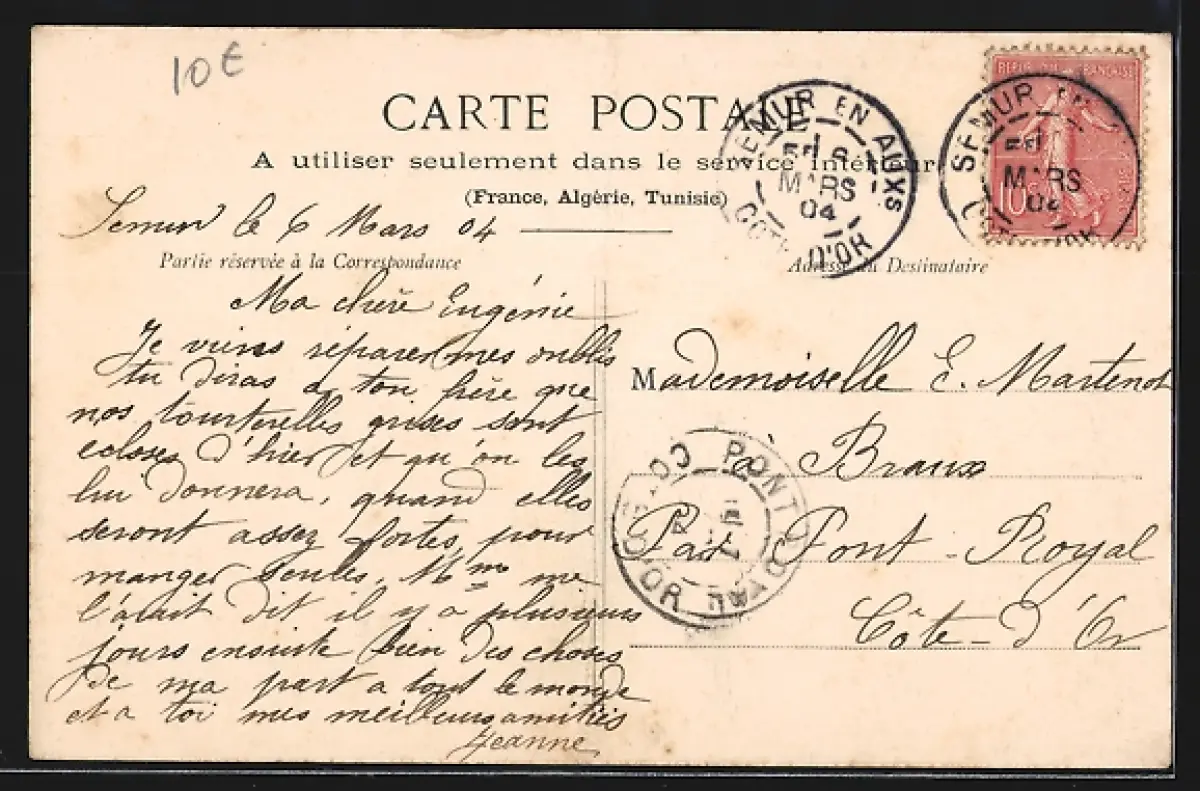 10€
CARTE POSTALE
A utiliser seulement dans le service intérieur
(France, Algérie, Tunisie)
Semur le 6 Mars 04
Partie réservée à la Correspondance
Ma chère Eugénie
Je viens réparer mes oublis
tu diras a ton frère que
nos tourterelles grises sont
ecloses d'hier et qu'on les
lui donnera, quand elles
seront assez fortes pour
manger seules, Mme me
l'avait dit il y a plusieurs
jours ensuite bien des choses
de ma part a tout le monde
et a toi mes meilleurs amitiés
Jeanne
SEMUR EN AUXS
MARS
04
COTE D'OR
REPUBLIQUE FRANÇAISE
10c
SEMUR EN
MARS
04
Adresse du Destinataire
Mademoiselle E. Martenot
à Braux
Par Pont-Royal
Côte-d'Or
PONT ROYAL
COTE D'OR